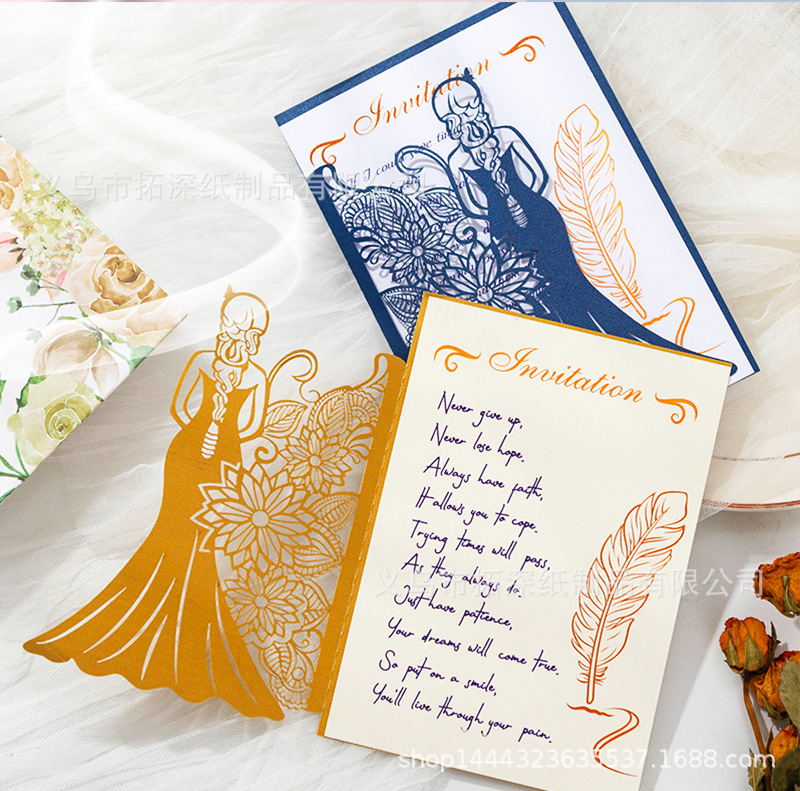 Invitation
If I could
义乌市拓深纸制品有限
Invitation
Never give up,
Never lose hope.
Always have faith,
It allows you to cope.
Trying times will pass,
As they always do.
Just have patience,
Your dreams will come true.
So put on a smile,
You'll live through your pain.
义乌市拓深纸制品有限公司
shop1444323635537.1688.com